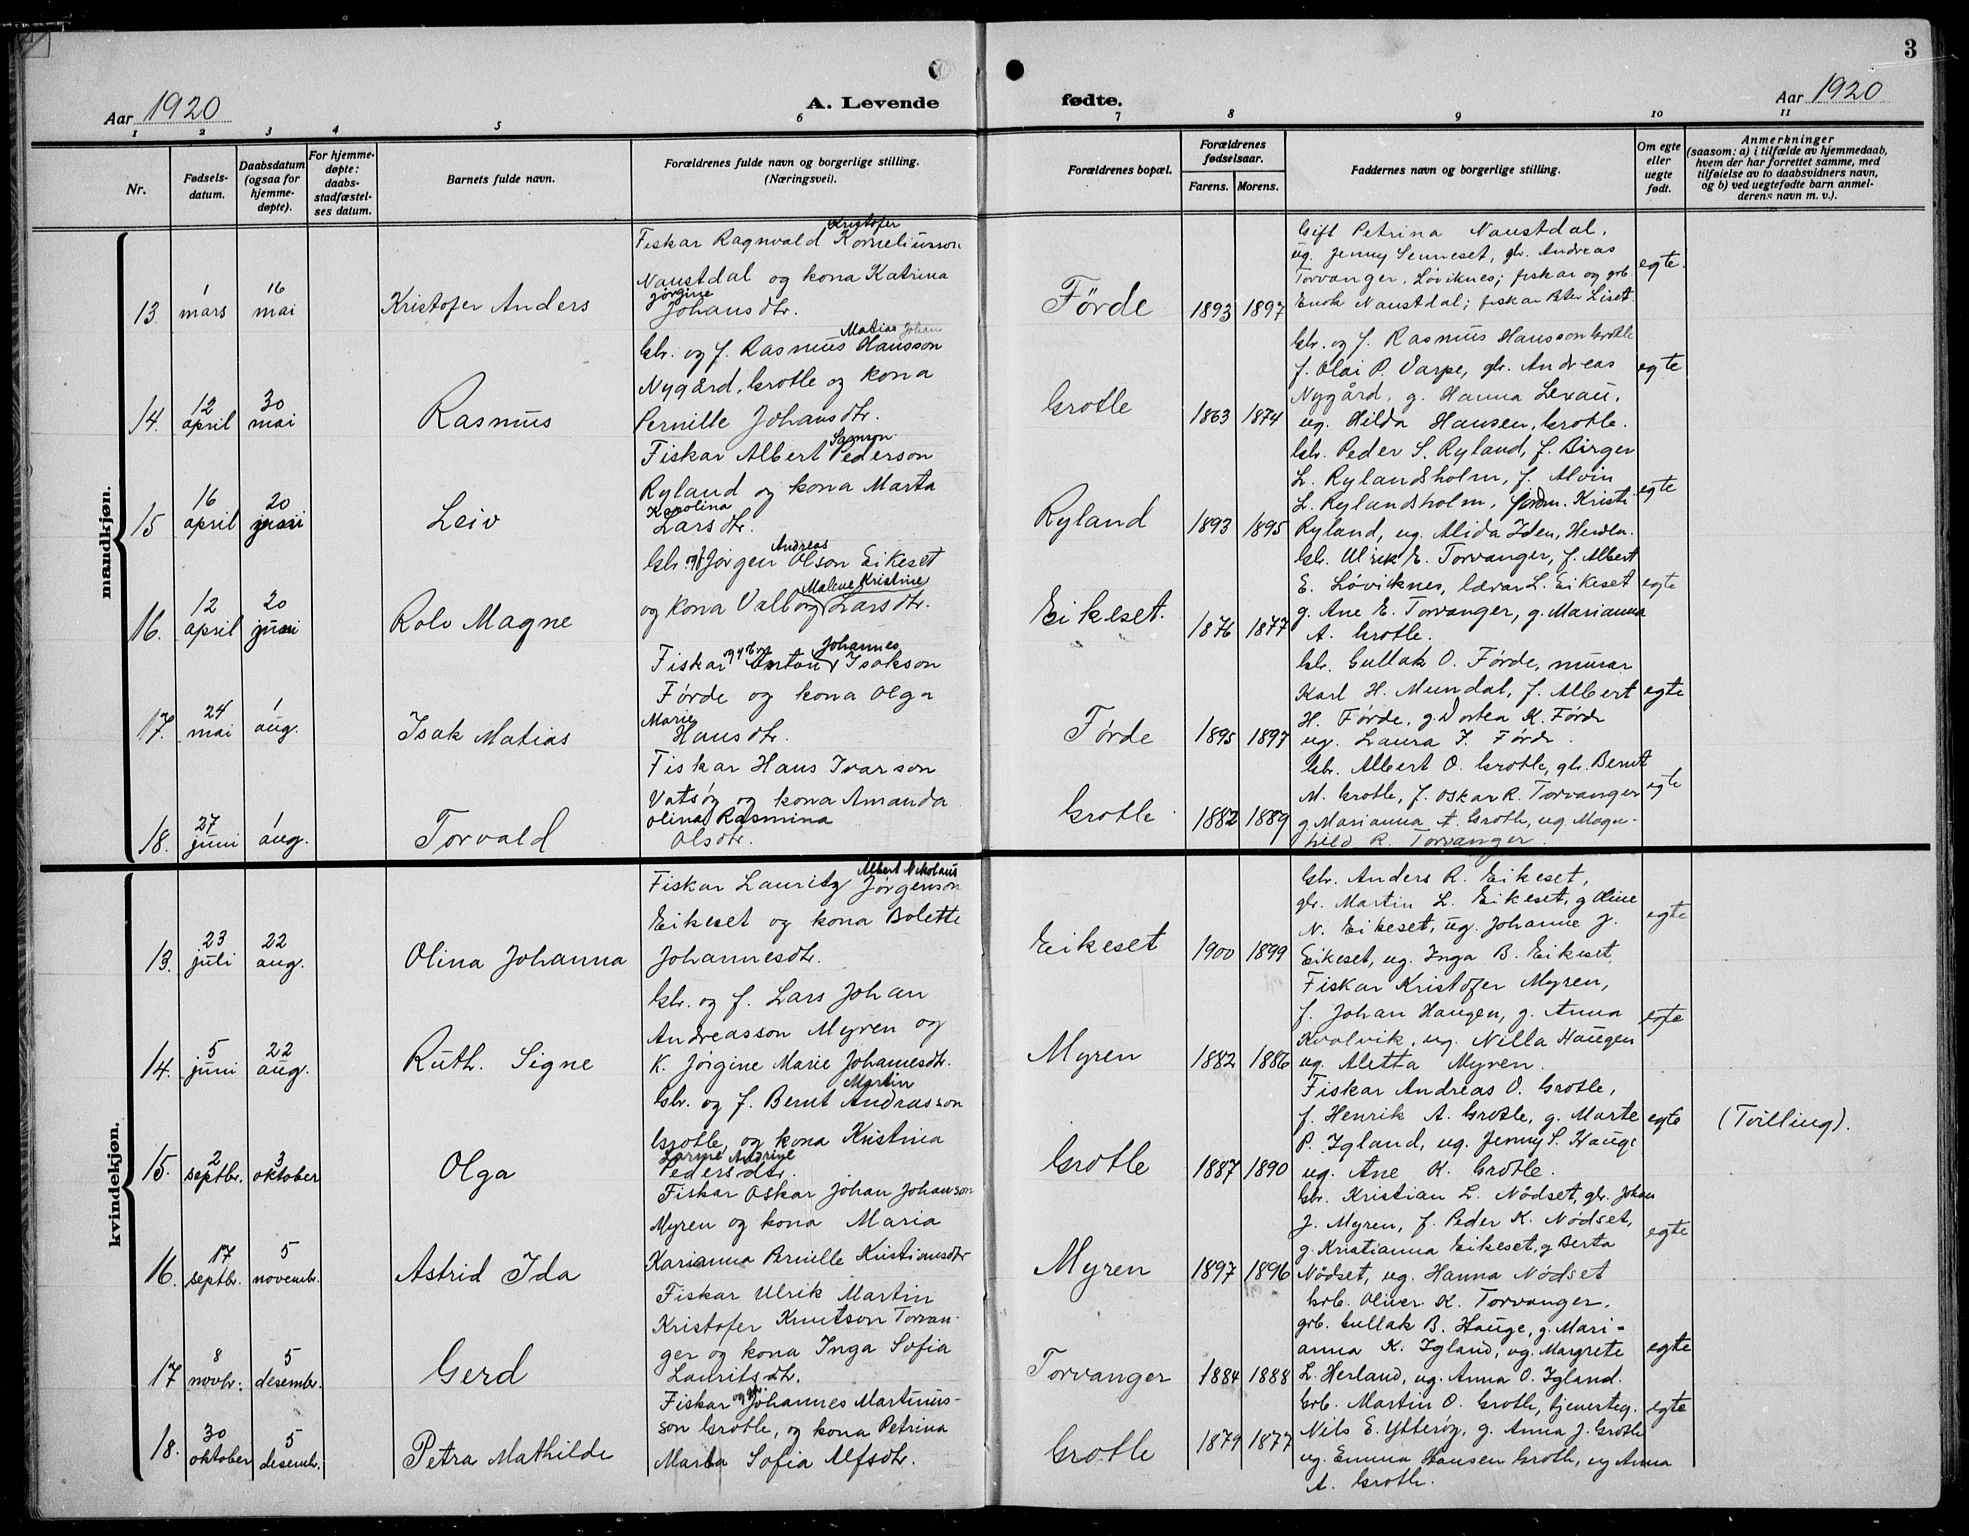 3
Aar 1920
A. Levende
fødte.
Aar 1920
1 2 3 4 5 6 7 8 9 10 11
Nr.
Fødsels-
datum.
Daabsdatum
(ogsaa for
hjemme-
døpte).
For hjemme-
døpte:
daabs-
stadfæstel-
ses datum.
Barnets fulde navn.
Forældrenes fulde navn og borgerlige stilling.
(Næringsvei).
Forældrenes bopæl.
Forældrenes
fødselsaar.
Farens. Morens.
Faddernes navn og borgerlige stilling.
Om egte
eller
uegte
født.
Anmerkninger
(saasom: a) i tilfælde av hjemmedaab,
hvem der har forrettet samme, med
tilføielse av to daabsvidners navn,
og b) ved uegtefødte barn anmel-
derens navn m. v.).
mandkjøn.
13. 1 mars
16 mai
Kristofer Anders
Kristofer
Fiskar Ragnvald Korneliusson
Naustdal og kona Katrina
Jørgine
Johansdtr.
Førde
1893 1897
Gift Petrina Naustdal,
ug. Jenny Senneset, gbr. Andreas
Torvanger, Løviknes; fiskar og grb
Enok Naustdal; fiskar Peter Liset
egte.
14. 12 april
30 mai
Rasmus
Matias Johan
Gbr. og f. Rasmus Hansson
Nygård, Grotle og kona
Pernille Johansdtr.
Grotle
1863 1874
Gbr. og f. Rasmus Hansson Grotle
f. Olai P. Varpe, gbr. Andreas
Nygård, g. Hanna Lexau,
ug. Hilda Hansen, Grotle.
egte
15. 16 april
20 juni
Leiv
Samson
Fiskar Albert Pederson
Ryland og kona Marta
Karolina
Larsdtr.
Ryland
1893 1895
Gbr. Peder S. Ryland, f. Birger
L. Rylandsholm, f. Alvin
L. Rylandsholm, Kristi
Ryland, ug. Alida Iden, Herdla.
egte
16. 12 april
20 juni
Rolv Magne
Andreas
Gbr. og f Jørgen Olson Eikeset
Malene Kristine
og kona Valborg Larsdtr.
Eikeset.
1876 1877
Gbr. Ulrik E. Torvanger, f. Albert
E. Løviknes, lærar L. Eikeset
g. Ane E. Torvanger, g. Marianna
A. Grotle.
egte
17. 24 mai
1 aug.
Isak Matias
Johannes
Fiskar Anton Isakson
Førde og kona Olga
Marie
Hansdtr.
Førde
1895 1897
Gbr. Gullak O. Førde, murar
Karl H. Mundal, f. Albert
H. Førde, g. Dortea K. Førde
ug. Laura I. Førde.
egte
18. 27 juni
1 aug.
Torvald
Fiskar Hans Ivarson
Vatsøy og kona Amanda
Olina Rasmina
Olsdtr.
Grotle
1882 1889
Gbr. Albert O. Grotle, gbr. Bernt
M. Grotle, f. Oskar R. Torvanger
g Marianna A. Grotle, ug. Magn-
hild R. Torvanger.
egte
kvindekjøn.
13. 23 juli
22 aug.
Olina Johanna
Albert Nikolaus
Fiskar Lauritz Jørgenson
Eikeset og kona Bolette
Johannesdtr.
Eikeset
1900 1899
Gbr. Anders R. Eikeset,
gbr. Martin L. Eikeset, g Oline
N. Eikeset, ug. Johanne J.
Eikeset, ug. Inga B. Eikeset.
egte
14. 5 juni
22 aug.
Ruth. Signe
Gbr. og f. Lars Johan
Andreasson Myren og
K. Jørgine Marie Johannesdtr.
Myren
1882 1886
Fiskar Kristofer Myren,
f. Johan Haugen, g. Anna
Kvalvik, ug. Nilla Haugen
ug. Aletta Myren.
egte
15. 2 septbr.
3 oktober
Olga
Martin
Gbr. og f. Bernt Andrasson
Grotle, og kona Kristina
Larine Andrine
Pedersdtr.
Grotle
1887 1890
Fiskar Andreas O. Grotle,
f. Henrik A. Grotle, g. Marte
P. Igland, ug. Jenny S. Hauge
ug. Ane K. Grotle.
egte
(Tvilling).
16. 17 septbr.
5 novembr.
Astrid Ida
Fiskar Oskar Johan Johanson
Myren og kona Maria
Karianna Pernille Kristiansdtr
Myren
1897 1896
Gbr. Kristian L. Nødset, gbr. Johan
J. Myren, f. Peder K. Nødset,
g. Kristianna Eikeset, g Berta
Nødset, ug. Hanna Nødset
egte
17 8 novbr.
5 desembr.
Gerd
Fiskar Ulrik Martin
Kristofer Knutson Torvan-
ger og kona Inga Sofia
Lauritsdtr.
Torvanger
1884 1888
Grb. Oliver K. Torvanger,
grb. Gullak B. Hauge, g. Mari-
anna K. Igland, ug. Margrete
L. Herland, ug. Anna O. Igland.
egte
18. 30 oktober
5 desembr.
Petra Mathilde
og gbr.
Fiskar Johannes Martinus-
son Grotle, og kona Petrina
Marta Sofia Alfsdtr.
Grotle
1879 1877
Grb. Martin O. Grotle, tjenesteg.
Nils E. Ytterøy, g. Anna J. Grotle
ug. Emma Hansen Grotle, ug Anna
A. Grotle.
egte